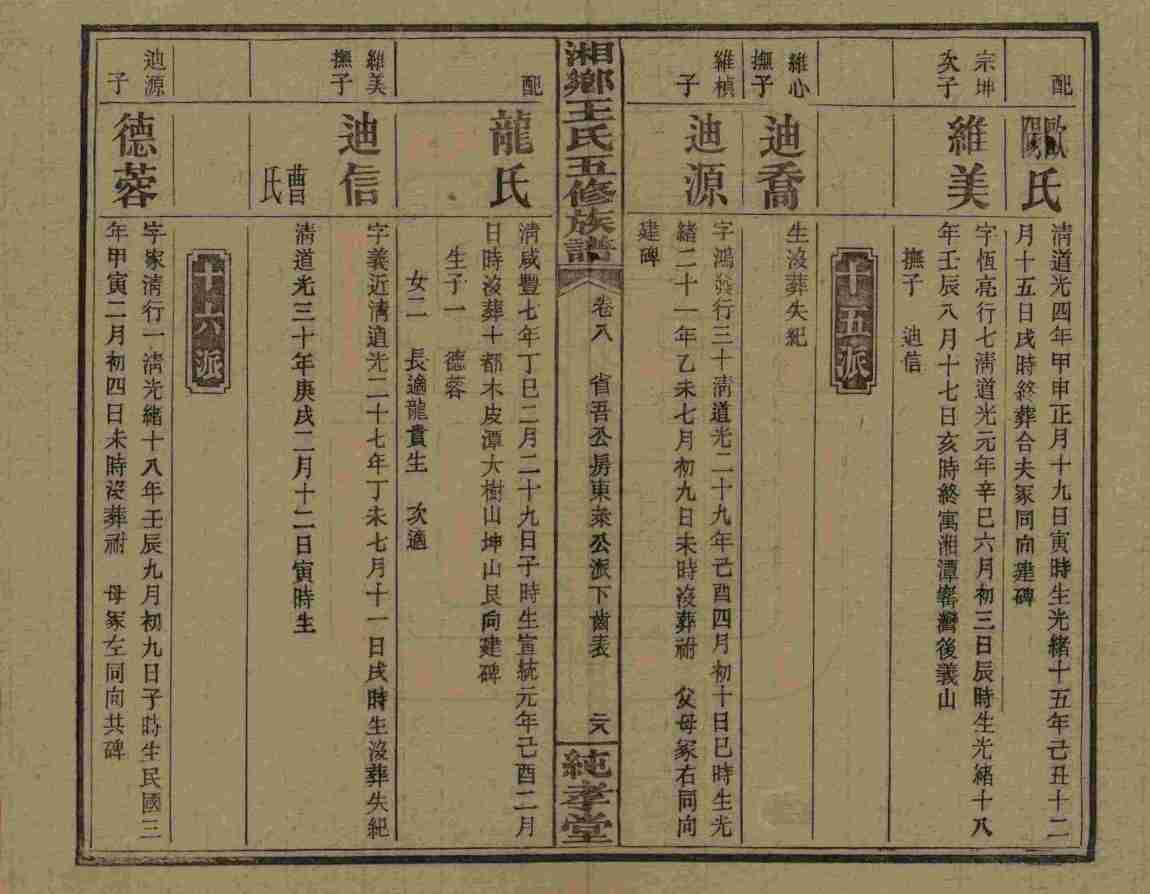 配
歐陽氏
清道光四年甲申正月十九日寅時生光緒十五年己丑十二
月十五日戌時終葬合夫冢同向建碑
宗坤
次子
維美
字恆亮行七清道光元年辛巳六月初三日辰時生光緒十八
年壬辰八月十七日亥時終寓湘潭窰灣後義山
撫子 迪信
十五派
維心
撫子
迪喬
生沒葬失紀
維楨
子
迪源
字鴻發行三十清道光二十九年己酉四月初十日巳時生光
緒二十一年乙未七月初九日未時沒葬祔 父母冢右同向
建碑
湘鄉王氏五修族譜
卷八 省吾公房東萊公派下齒表
純孝堂
配
龍氏
清咸豐七年丁巳二月二十九日子時生宣統元年己酉二月
日時沒葬十都木皮潭大樹山坤山艮向建碑
生子一 德蓉
女二 長適龍貴生 次適
維美
撫子
迪信
字義近清道光二十七年丁未七月十一日戌時生沒葬失紀
曹氏
清道光三十年庚戌二月十二日寅時生
十六派
迪源
子
德蓉
字家清行一清光緒十八年壬辰九月初九日子時生民國三
年甲寅二月初四日未時沒葬祔 母冢左同向共碑